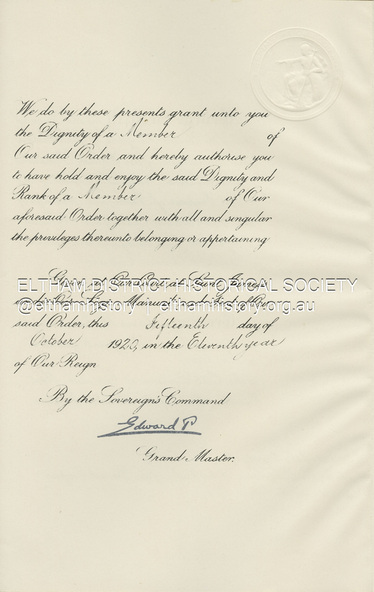 We do by these presents grant unto you
the Dignity of a Member of
Our said Order and hereby authorise you
to have hold and enjoy the said Dignity and
Rank of a Member of Our
aforesaid Order together with all and singular
the privileges thereunto belonging or appertaining
Given at Our Court at Saint James's
ELTHAM DISTRICT HISTORICAL SOCIETY
under Our Sign Manual and
@elthamhistory - elthamhistory.org.au
said Order, this Fifteenth day of
October 1920, in the Eleventh year
of Our Reign
By the Sovereign's Command
Edward P
Grand Master.